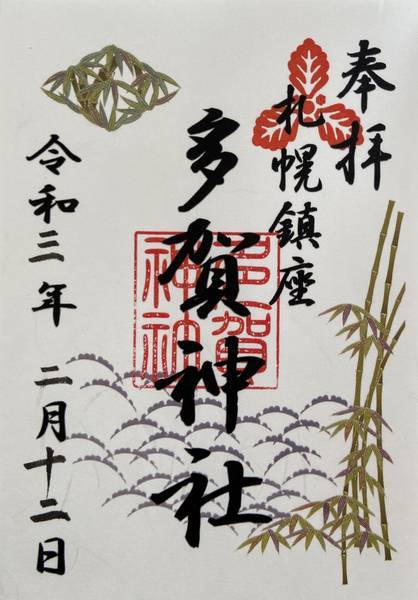 奉拝
札幌鎮座
多賀神社
多賀
神社
令和三年 二月十二日